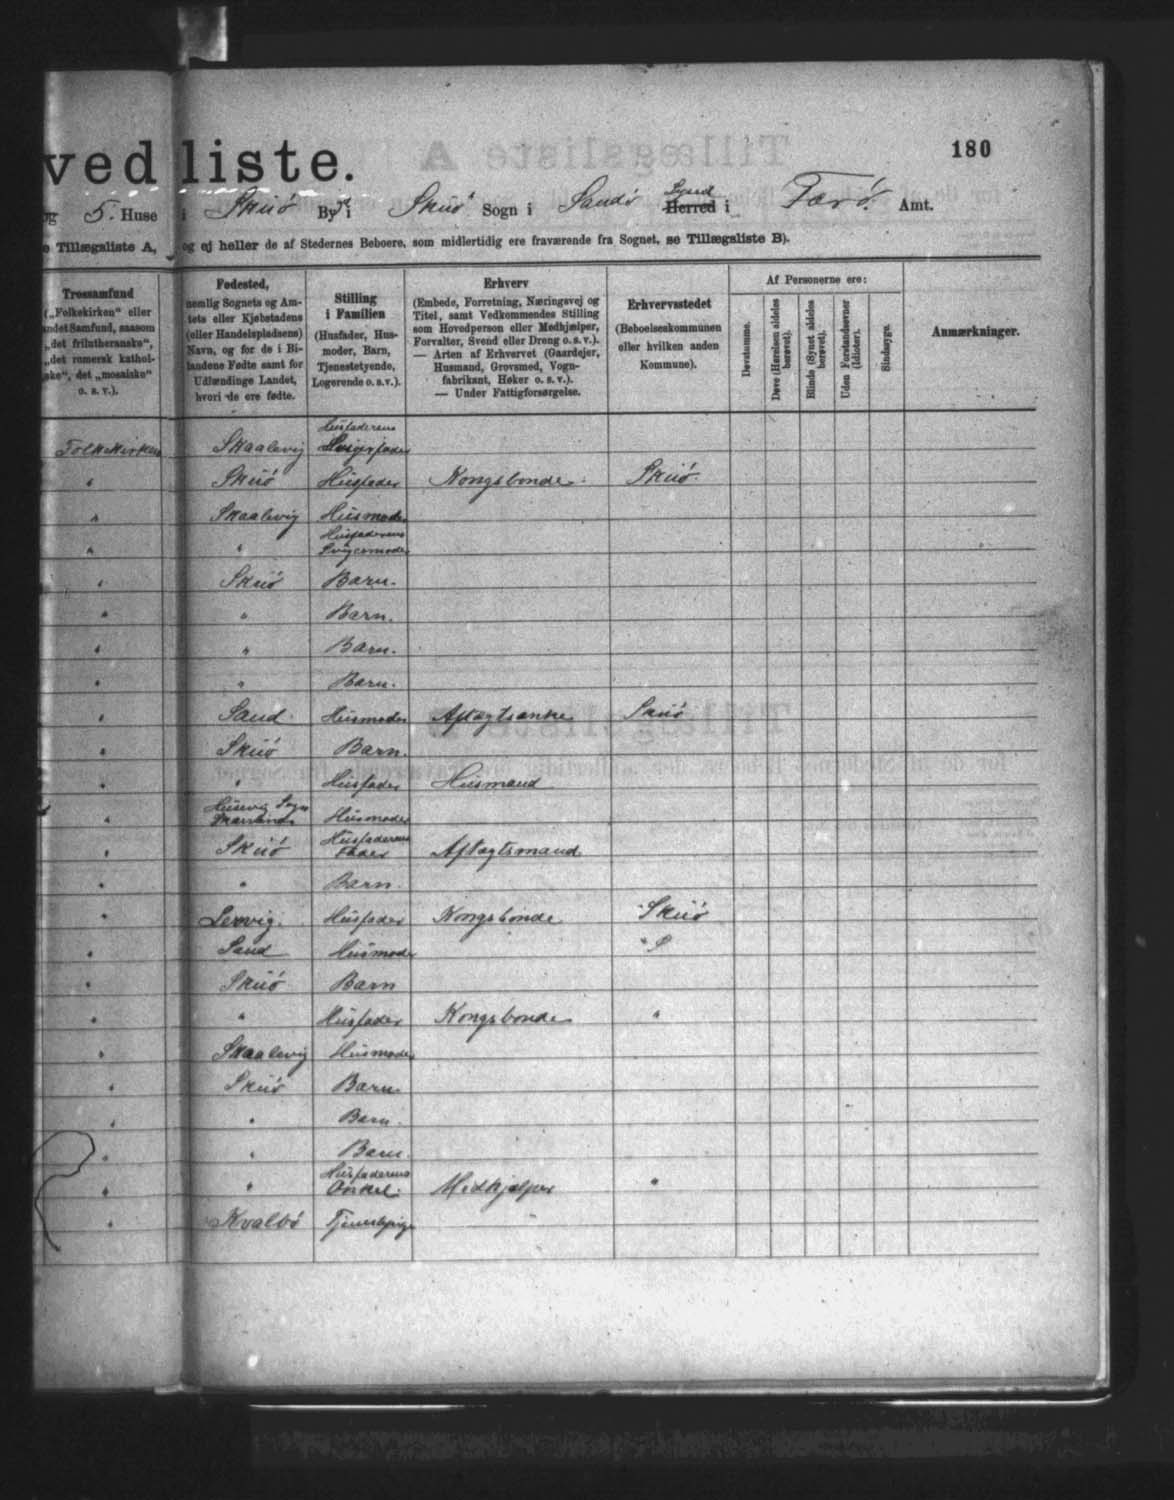 180
ved liste.
og 5. Huse i Skuö By i Skuö Sogn i Sandö Syssel Herred i Færö Amt.
e Tillægsliste A, og ej heller de af Stedernes Beboere, som midlertidig ere fraværende fra Sognet, se Tillægsliste B).
Trossamfund
(„Folkekirken“ eller
andet Samfund, saasom
„det frilutheranske“,
„det romersk kathol-
ske“, det „mosaiske“
o. s. v.).
Fødested,
nemlig Sognets og Am-
tets eller Kjøbstadens
(eller Handelspladsens)
Navn, og for de i Bi-
landene Fødte samt for
Udlændinge Landet,
hvori de ere fødte.
Stilling
i Familien
(Husfader, Hus-
moder, Barn,
Tjenestetyende,
Logerende o. s. v.).
Erhverv
(Embede, Forretning, Næringsvej og
Titel, samt Vedkommendes Stilling
som Hovedperson eller Medhjælper,
Forvalter, Svend eller Dreng o. s. v.).
— Arten af Erhvervet (Gaardejer,
Husmand, Grovsmed, Vogn-
fabrikant, Høker o. s. v.).
— Under Fattigforsørgelse.
Erhvervsstedet
(Beboelseskommunen
eller hvilken anden
Kommune).
Af Personerne ere:
Døvstumme.
Døve (Hørelsen aldeles
berøvet).
Blinde (Synet aldeles
berøvet).
Uden Forstandsevner
(Idioter).
Sindssyge.
Anmærkninger.
Folkekirken Skaalevig Husfaderens Svigerfader
" Skuö Husfader Kongsbonde. Skuö.
" Skaalevig Husmoder
" " Husfaderens Svigermoder
" Skuö Barn.
" " Barn.
" " Barn.
" " Barn.
" Sand Husmoder Aftægtsenke Skuö
" Skuö Barn.
" " Husfader Husmand
" Husevig Sogn Husmoder
" Skuö Husfaderens Fader Aftægtsmand
" " Barn.
" Lervig. Husfader Kongsbonde Skuö
" Sand Husmoder "
" Skuö Barn
" " Husfader Kongsbonde "
" Skaalevig Husmoder
" Skuö Barn
" " Barn.
" " Barn.
" " Husfaderens Onkel. Medhjælper "
" Kvalbö Tjenestepige